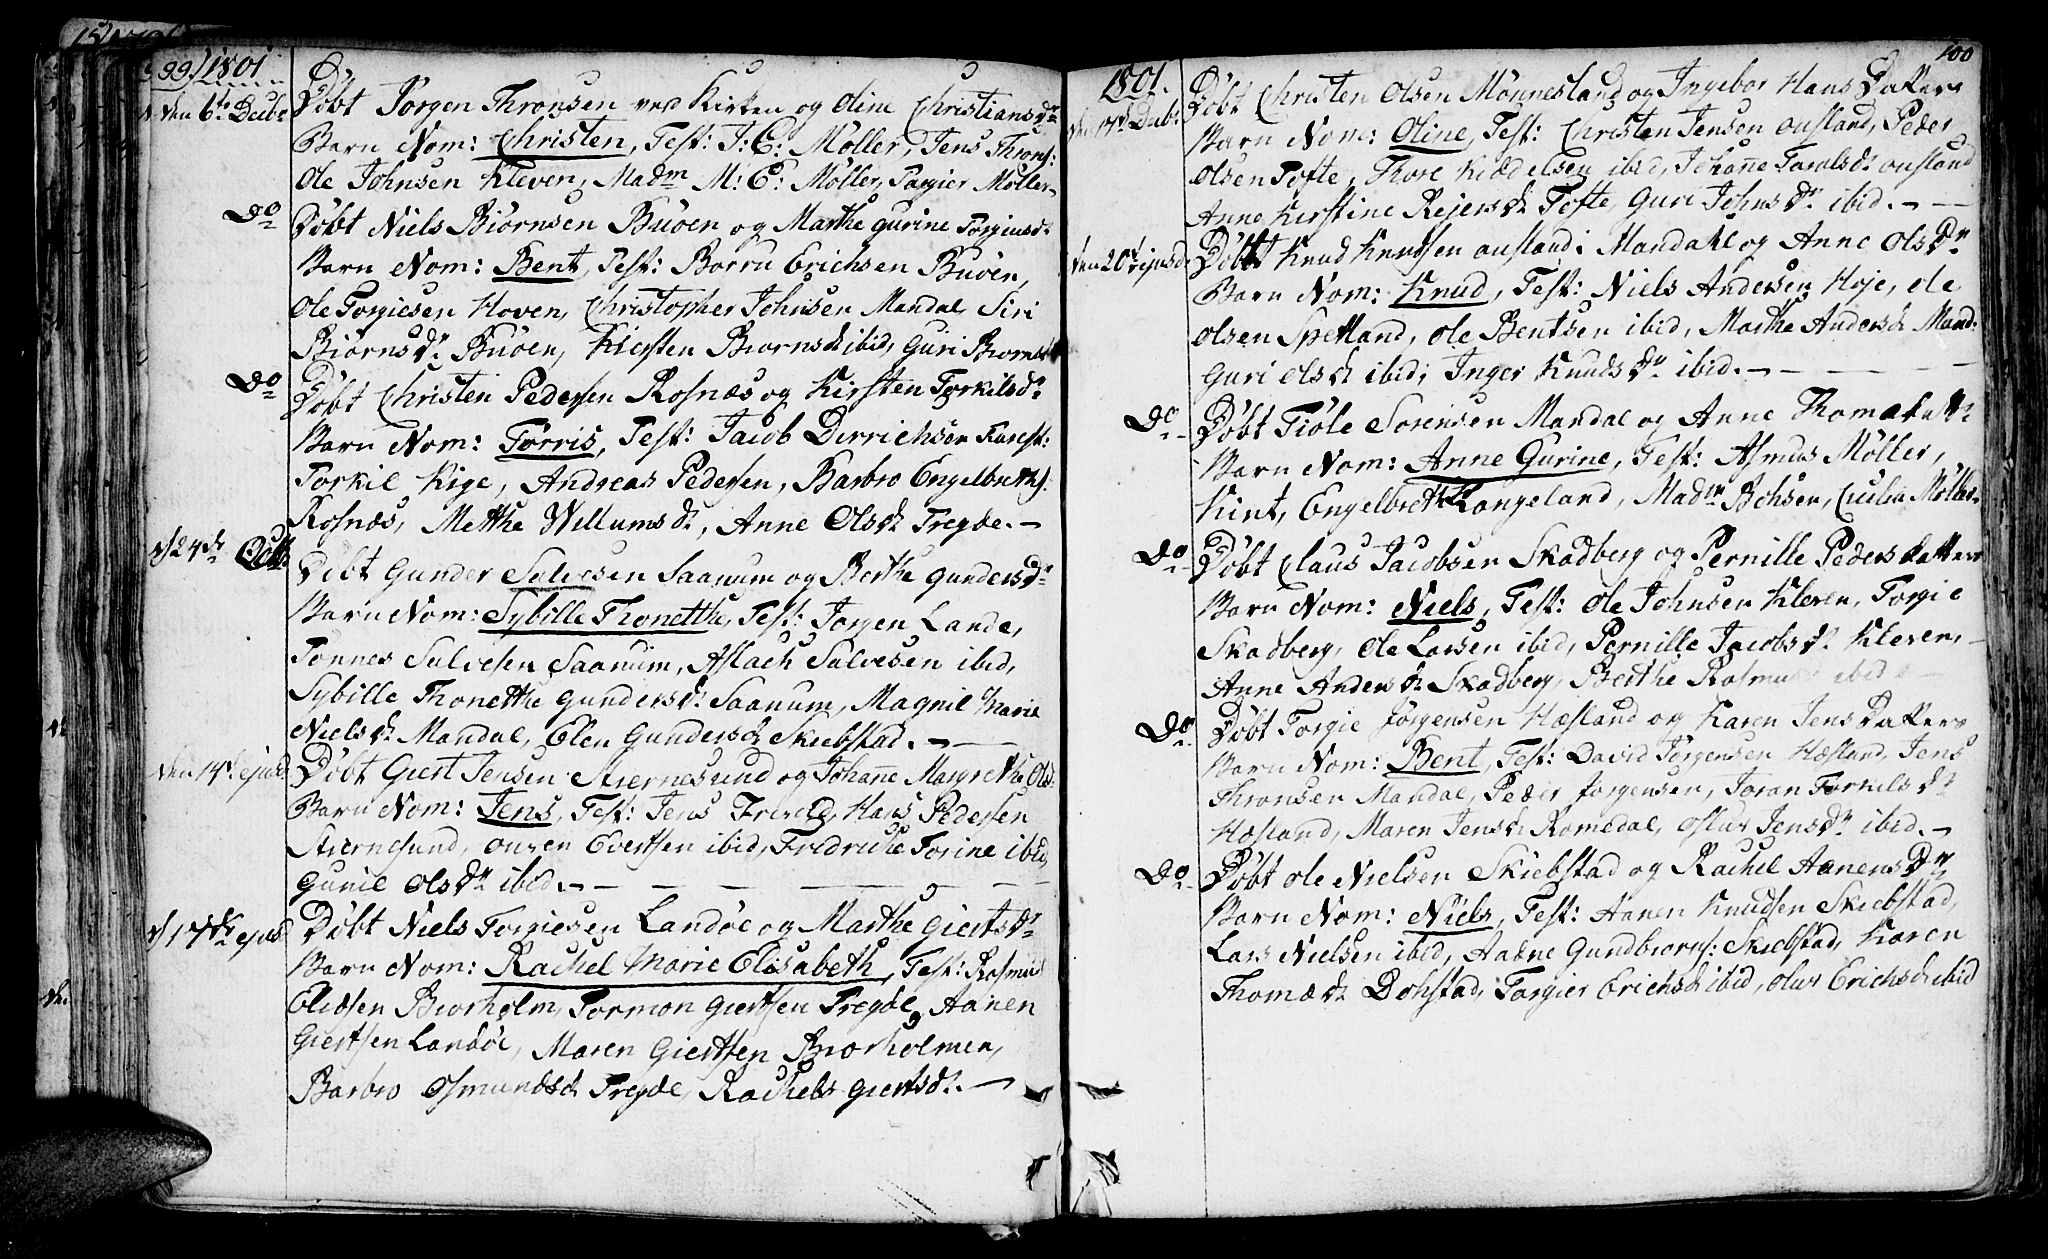 99. 1801
den 6te Decbr Døbt Jørgen Thronsen ved Kirken og Oline Christiansdr
Barn Nom: Christen, Test: J: C: Møller, Jens Throns:
Ole Johnsen Kleven, Madm M: C: Møller, Torgier Møller
Do Døbt Niels Biørnsen Buøen og Marthe Gurine Torgiusdr
Barn Nom: Bent, Test: Borru Erichsen Buöen,
Ole Torgiesen Hoven, Christopher Johnsen Mandal, Siri
Biørnsdr Buöen, Kiersten Biornsdr ibid, Guri Biornsdr
Do Døbt Christen Pedersen Rosnæs og Kirsten Torkilsdr
Barn Nom: Torris, Test: Jacob Derrichson
Torkil Kige, Andreas Pedersen, Barbro Engelbreths:
Rosnæs, Metthe Willumsdr, Anne Olsdr Tregde. —
Døbt Gunder Salvesen Saanum og Berthe Gundersdr
Barn Nom: Sybille Thonetthe, Test: Jørgen Lande,
Tønnes Salvesen Saanum, Aslach Salvesen ibid,
Sybille Thonetthe Gundersdr Saanum, Magnil Marie
Nielsdr Mandal, Elen Gundersdr Skiebstad. —
den 14d ejusd Døbt Giert Jensen Stiernesund og Johañe Margrethe Ols
Barn Nom: Jens, Test: Jens Hans Pedersen
Stiernesund, Evertsen ibid, Fredriche Torine ibid,
Gunil Olsdr ibid. — — —
d 17de ejusd Døbt Niels Torgiesen Landøe og Marthe Giertsdr
Barn Nom: Rachel Marie Elisabeth, Test: Rasmus
Eliæsen Biorholm, Tormon Giertsen Tregde, Aanen
Giertsen Landøe, Maren Giertsen Biorholmen,
Barbro Osmundsdr Tregde, Rachels Giertsdr. —
100
1801.
den 17d Decbr Døbt Christen Olsen Mönnesland og Ingebor Hans Datter
Barn Nom: Oline, Test: Christen Jensen Ausland, Peder
Olsen Tofte, Thore Kiddelsen ibid, Johañe Taralsdr Ausland
Anne Kirstine Rejersdr Tofte, Guri Johnsdr ibid. — —
den 20d ejusd Døbt Knud Knudsen Ausland i Mandahl og Anne Olsdr
Barn Nom: Knud, Test: Niels Andersen Høje, Ole
Olsen Spetland, Ole Bentsen ibid, Marthe Andersdr Mand:
Guri Olsdr ibid, Inger Knudsdr ibid. — — —
Do Døbt Tiøle Sørensen Mandal og Anne Thomasdr
Barn Nom: Anne Gurine, Test: Asmus Möller,
Kint, Engelbreth Kongeland, Madm Bohsen, Cicilia Møller
Do Døbt Claus Jacobsen Skadberg og Pernille Peders Datter
Barn Nom: Niels, Test: Ole Johnsen Kleven, Torgie
Skadberg, Ole Larsen ibid, Pernille Jacobsdr Kleven,
Anne Andersdr Skadberg, Berthe Rasmusdr ibid —
Do Døbt Torgie Jørgensen Hæsland og Karen Jens Datter
Barn Nom: Bent, Test: David Jørgensen Hæsland, Jens
Thronsen Mandal, Peder Jorgensen, Joran Torkilsdr
Hæsland, Maren Jensdr Romedal, Olus Jensdr ibid. —
Do Døbt Ole Nielsen Skiebstad og Rachel Aanensdr
Barn Nom: Niels, Test: Aanen Knudsen Skiebstad,
Lars Nielsen ibid, Aadne Gundbiorns: Skiebstad, Karen
Thomædr Dohstad, Torgier Erichsdr ibid, Olus Erichsdr ibid